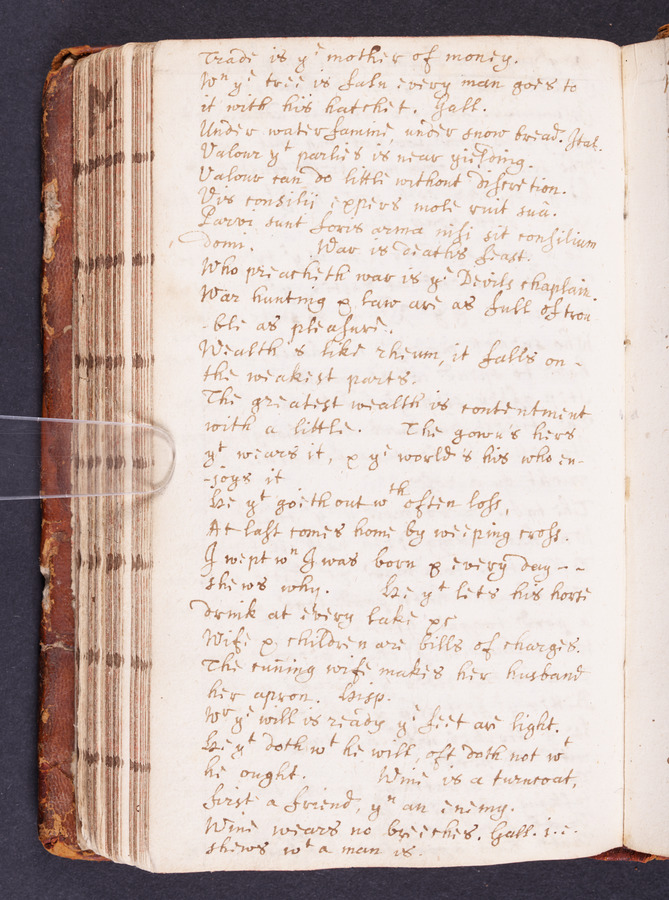 Trade is yᵉ mother of money.
Wⁿ yᵉ tree is faln every man goes to
it with his hatchet. Gall.
Under water famine, under snow bread. Ital.
Valour yᵗ parlies is near yielding.
Valour can do little without discretion.
Vis consilij expers mole ruit suâ.
Parvi sunt foris arma nisi sit consilium
domi. War is deaths feast.
Who preacheth war is yᵉ Devils chaplain.
War hunting & law are as full of trou
-ble as pleasure.
Wealth s like rheum, it falls on -
the weakest parts.
The greatest wealth is contentment
with a little. The gown's hers
yᵗ wears it, & yᵉ world's his who en-
-joys it
He yᵗ goeth out wᵗʰ often loss,
At last comes home by weeping cross.
I wept wⁿ I was born & every day - -
shews why. He yᵗ lets his horse
drink at every lake &c
Wife & children are bills of charges.
The cuning wife makes her husband
her apron. Hisp.
Wʳ yᵉ will is ready yᵉ feet are light.
He yᵗ doth wᵗ he will, oft doth not wᵗ
he ought. Wine is a turncoat,
first a friend, yⁿ an enemy.
Wine wears no breeches. Gall. i.e.
shews wᵗ a man is.